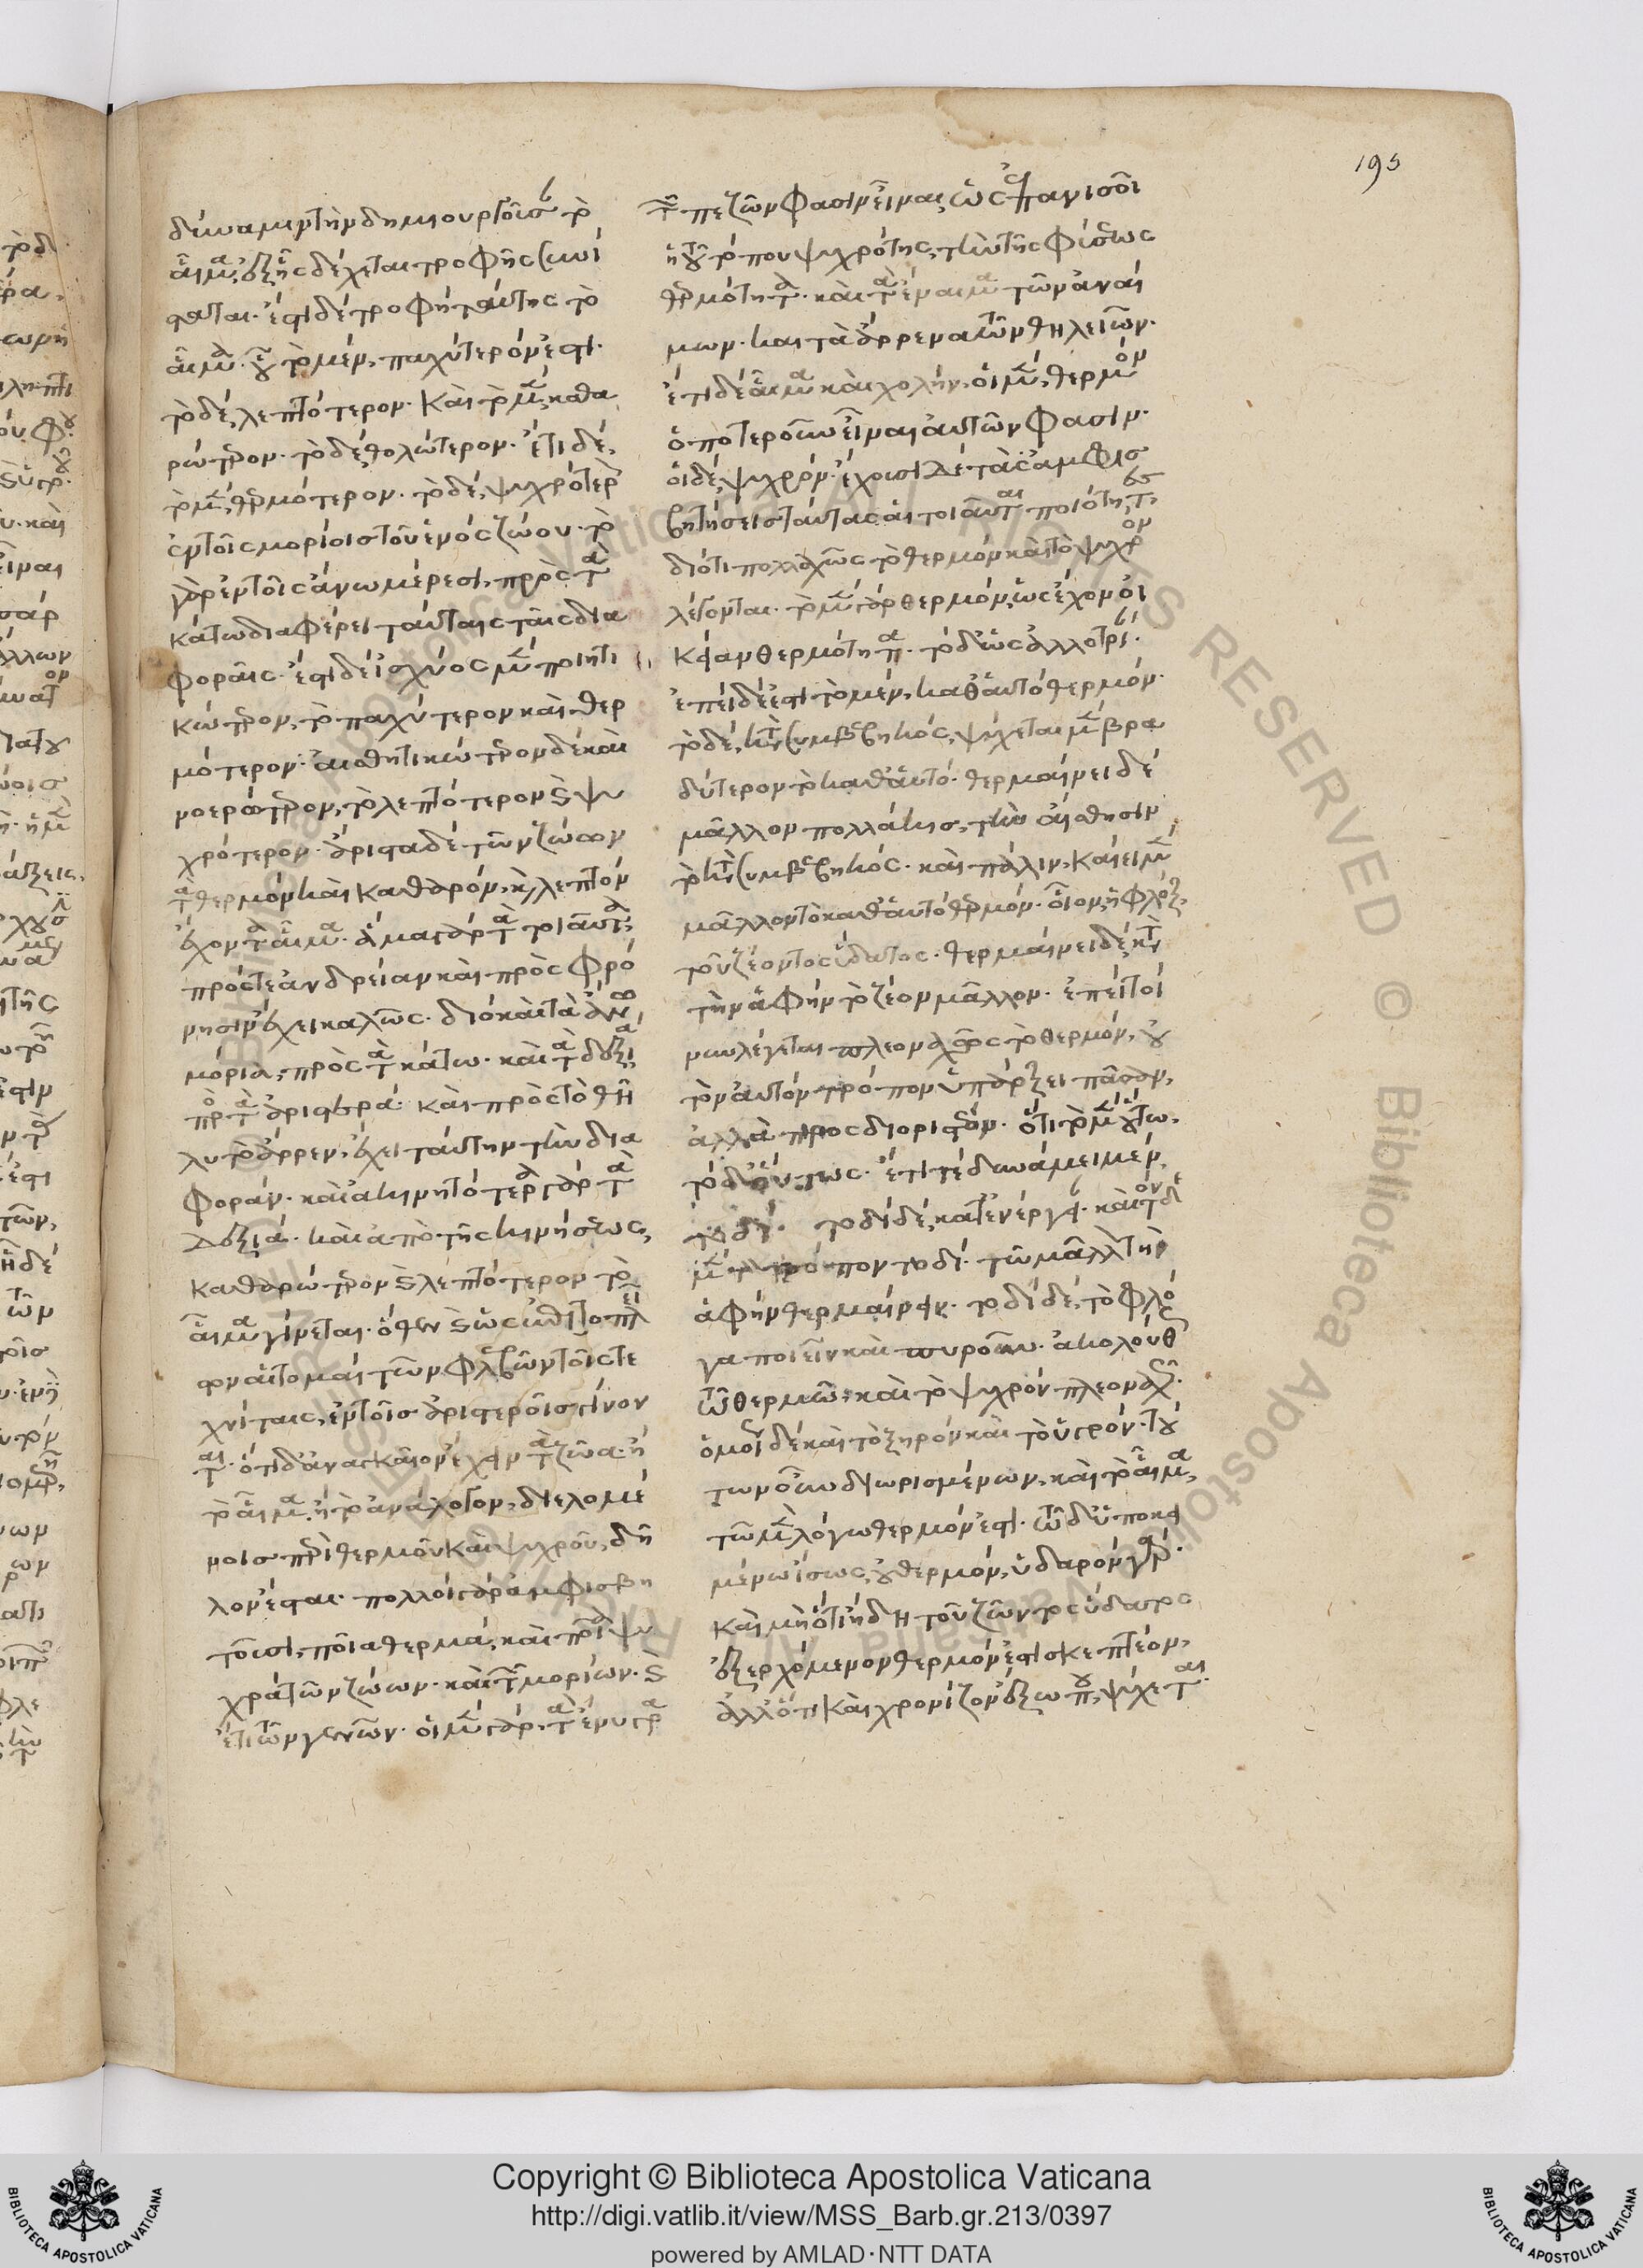 195
δύναμιν τὴν δημιουργοῦσ τὸ
αἷμ, ἐξ ἧς δέχεται τροφῆς συνί
σταται. ἔστι δὲ τροφὴ ταύτης τὸ
αἷμ τὸ μὲν, παχύτερόν ἐστι.
τὸ δὲ, λεπτότερον. καὶ τὸ μ, καθα
ρώτερον. τὸ δὲ, θολώτερον. ἔτι δὲ,
τὸ μ, θερμότερον. τὸ δὲ, ψυχρότερ
ἐν τοῖς μορίοις τοῦ ἑνὸς ζώου. τὸ
γὰρ ἐν τοῖς ἄνω μέρεσι, πρὸς τὰ
κάτω διαφέρει ταύταις ταῖς δια
φοραῖς. ἔστι δὲ ἰσχύος μ ποιητι
κώτερον, τὸ παχύτερον καὶ θερ
μότερον. αἰσθητικώτερον δὲ καὶ
νοερώτερον, τὸ λεπτότερον κ ψυ
χρότερον. ἄριστα δὲ τῶν ζώων
τὰ θερμὸν καὶ καθαρὸν, κ λεπτὸν
ἔχοντα αἷμα. ἅμα γὰρ τὰ τοιαῦτα,
πρός τε ἀνδρείαν καὶ πρὸς φρό
νησιν ἔχει καλῶς. διὸ καὶ τὰ ἄνω
μόρια, πρὸς τὰ κάτω. καὶ τὰ δεξιὰ
πρὸ τὰ ἀριστερά. καὶ πρὸς τὸ θῆ
λυ τὸ ἄρρεν, ἔχει ταύτην τὴν δια
φοράν. καὶ ἀκινητότερα γὰρ τὰ
δεξιά. καὶ ἀπὸ τῆς κινήσεως,
καθαρώτερον κ λεπτότερον τὸ
αἷμα γίνεται.
χνίταις, ἐν τοῖς ἀριστεροῖς γίνον
ται. ὅτι δ' ἀναγκαῖον ἔχειν τὰ ζῶα ἢ
τὸ αἷμα ἢ τὸ ἀνάλογον, διελομέ
νοις περὶ θερμοῦ καὶ ψυχροῦ, δῆ
λον ἔσται. πολλοὶ γὰρ ἀμφισβη
τοῦσι, ποῖα θερμὰ, καὶ ποῖα ψυ
χρὰ τῶν ζώων. καὶ τῶν μορίων. κ
ἔτι τῶν γενῶν. οἱ μ γὰρ, τὰ ἔνυδρα
τῶν πεζῶν φασιν εἶναι, ὡς ἐπανισοῖ
ἡ τοῦ τόπου ψυχρότης, τὴν τῆς φύσεως
θερμότητα. καὶ τὰ ἔναιμα τῶν ἀναί
μων. καὶ τὰ ἄρρενα τῶν θηλειῶν.
ἔτι δὲ αἷμα καὶ χολήν. οἱ μ, θερμὸν
ὁποτερονοῦν εἶναι αὐτῶν φασιν.
οἱ δὲ, ψυχρόν. ἔχουσι δὲ τὰς ἀμφισ
βητήσεις ταύτας αἱ τοιαῦται ποιότητες,
διότι πολλαχῶς τὸ θερμὸν καὶ τὸ ψυχρὸν
λέγονται. τὸ μ γὰρ θερμὸν, ὡς ἔχον οἰ
κείαν θερμότητα. τὸ δ' ὡς ἀλλοτρί.
ἐπεὶ δέ ἐστι τὸ μὲν, καθ' αὑτὸ θερμόν.
τὸ δὲ, κατὰ συμβεβηκὸς, ψύχεται μ βρα
δύτερον τὸ καθ' αὑτό. θερμαίνει δὲ
μᾶλλον πολλάκις, τὴν αἴσθησιν
τὸ κατὰ συμβεβηκός. καὶ πάλιν, καίει μ
μᾶλλον τὸ καθ' αὑτὸ θερμόν. οἷον ἡ φλὸξ,
τοῦ ζέοντος ὕδατος. θερμαίνει δὲ κατὰ
τὴν ἁφὴν τὸ ζέον μᾶλλον. ἐπεὶ τοί
νυν λέγεται πλεοναχῶς τὸ θερμόν, οὐ
τὸν αὐτὸν τρόπον ὑπάρξει πᾶσιν,
ἀλλὰ προσδιοριστέον. ὅτι τὸ μ οὕτω,
τὸ δ' οὕτως. ἔτι τε δυνάμει μὲν
τοδί. τοδὶ δὲ, κατ' ἐνέργει. καὶ τόνδε
μ τὸν τρόπον τοδί. τῷ μᾶλλον τὴν
ἁφὴν θερμαίνειν. τοδὶ δὲ, τὸ φλό
γα ποιεῖν καὶ πυροῦν. ἀκολούθ
τῷ θερμῷ, καὶ τὸ ψυχρὸν πλεοναχῶς.
ὁμοῦ δὲ καὶ τὸ ξηρὸν καὶ τὸ ὑγρόν. τού
των οὖν διωρισμένων, καὶ τὸ αἷμα,
τῷ μ λόγῳ θερμόν ἐστι. τῷ δ' ὑποκει
μένῳ ἴσως, οὐ θερμόν, ὑδαρὸν γάρ.
καὶ μὴν ὅτι ἤδη τοῦ ζῶντος ὕδατος
ἐξερχόμενον θερμόν ἐστι σκεπτέον,
ἀλλ' ὅτι καὶ χρονίζον ἔξω που, ψύχεται.
Copyright © Biblioteca Apostolica Vaticana
http://digi.vatlib.it/view/MSS_Barb.gr.213/0397
powered by AMLAD·NTT DATA